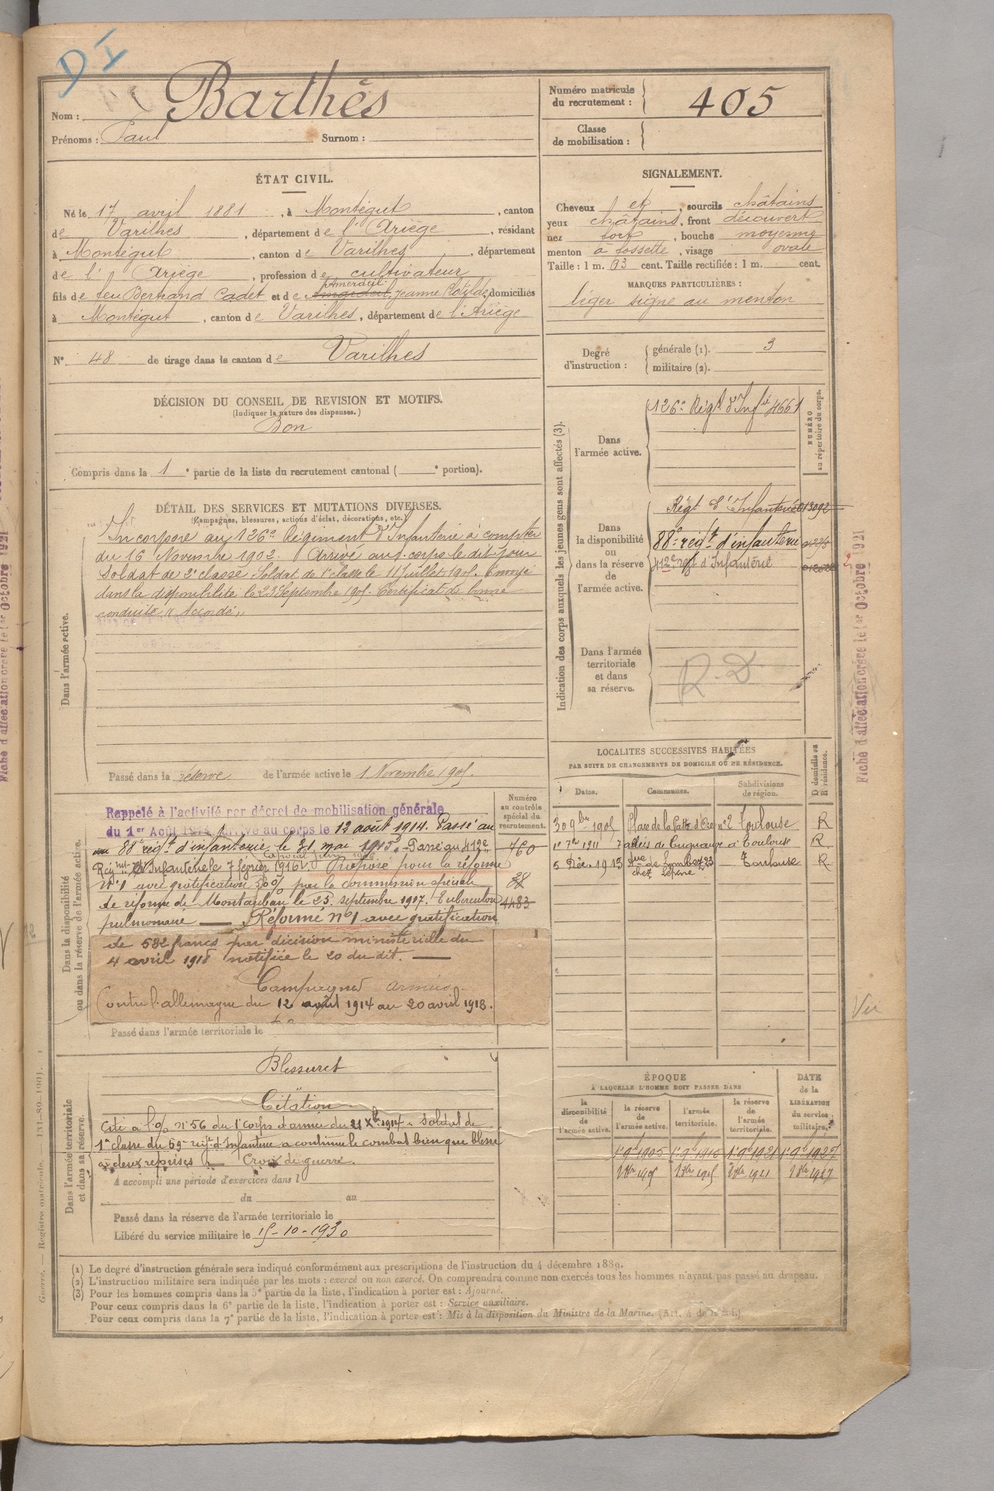 D I
Nom : Barthès
Prénoms : Paul Surnom :
Numéro matricule
du recrutement : 405
Classe
de mobilisation :
ÉTAT CIVIL.
Né le 17 avril 1881, à Montégut, canton
de Varilhes, département de l'Ariège, résidant
à Montégut, canton de Varilhes, département
de l'Ariège, profession de cultivateur
fils de feu Bertrand Cadet et de Jeanne domiciliés
à Montégut, canton de Varilhes, département de l'Ariège
N° 48 de tirage dans le canton de Varilhes
SIGNALEMENT.
Cheveux et sourcils châtains
yeux châtains, front découvert
nez fort, bouche moyenne
menton à fossette, visage ovale
Taille : 1 m. 63 cent. Taille rectifiée : 1 m. cent.
MARQUES PARTICULIÈRES :
léger signe au menton
Degré
d'instruction :
générale (1). 3
militaire (2).
DÉCISION DU CONSEIL DE REVISION ET MOTIFS.
(Indiquer la nature des dispenses.)
Bon
Compris dans la 1e partie de la liste du recrutement cantonal ( e portion).
DÉTAIL DES SERVICES ET MUTATIONS DIVERSES.
(Campagnes, blessures, actions d'éclat, décorations, etc.)
Dans l'armée active.
Incorporé au 126e Régiment d'Infanterie à compter
du 16 Novembre 1902. Arrivé au corps le dit jour
Soldat de 2e classe. Soldat de 1e classe le 11 juillet 1905. Envoyé
dans la disponibilité le 23 Septembre 1905. Certificat de bonne
conduite "Accordé"
Passé dans la réserve de l'armée active le 1 Novembre 1905.
Indication des corps auxquels les jeunes gens sont affectés (3).
NUMÉRO
au répertoire du corps.
Dans
l'armée active.
126e Régt d'Infie 4661
Dans
la disponibilité
ou
dans la réserve
de
l'armée active.
Régt d'Infanterie
88e régt d'infanterie
412e régt d'Infanterie
Dans l'armée
territoriale
et dans
sa réserve.
R.D
Fiche d'affectation créée le 1er Octobre 1921
Dans la disponibilité
ou dans la réserve de l'armée active.
Numéro
au contrôle
spécial du
recrutement.
Rappelé à l'activité par décret de mobilisation générale
du 1er Août 1914, Arrivé au corps le 12 août 1914. Passé au
88e régt d'infanterie le 21 mai 1915. Passé au 412e
Régt d'Infanterie le 7 février 1916. Proposé pour la réforme
N°1 avec gratification 30% par la commission spéciale
de réforme de Montauban le 25 septembre 1917. Tuberculose
pulmonaire — Réformé n°1 avec gratification
de 582 francs par décision ministérielle du
4 avril 1918 notifiée le 20 du dit. —
760
88
4483
Campagnes
Contre l'allemagne du 12 août 1914 au 20 avril 1918.
Passé dans l'armée territoriale le
LOCALITÉS SUCCESSIVES HABITÉES
PAR SUITE DE CHANGEMENTS DE DOMICILE OU DE RÉSIDENCE.
Dates. Communes. Subdivisions
de région. D domicile ou
R résidence.
30 9bre 1905 Place de la Patte d'Oie n°2 Toulouse R
1er 7bre 1911 Toulouse R
5 Déc 1913 Toulouse R
Dans l'armée territoriale
et dans sa réserve.
Blessures
Citation
Cité à l'o/ n°56 du 1e corps d'armée du 21 Xbre 1914. Soldat de
1e classe du 59e régt d'Infanterie a continué le combat bien que blessé
à deux reprises. Croix de guerre.
A accompli une période d'exercices dans l
du au
Passé dans la réserve de l'armée territoriale le
Libéré du service militaire le 15-10-1930
ÉPOQUE
À LAQUELLE L'HOMME DOIT PASSER DANS
DATE
de la
LIBÉRATION
du service
militaire.
la
disponibilité
de
l'armée active.
la réserve
de
l'armée active.
l'armée
territoriale.
la réserve
de
l'armée
territoriale.
Vu
(1) Le degré d'instruction générale sera indiqué conformément aux prescriptions de l'instruction du 4 décembre 1889.
(2) L'instruction militaire sera indiquée par les mots : exercé ou non exercé. On comprendra comme non exercés tous les hommes n'ayant pas passé au drapeau.
(3) Pour les hommes compris dans la 5e partie de la liste, l'indication à porter est : Ajourné.
Pour ceux compris dans la 6e partie de la liste, l'indication à porter est : Service auxiliaire.
Pour ceux compris dans la 7e partie de la liste, l'indication à porter est : Mis à la disposition du Ministre de la Marine.